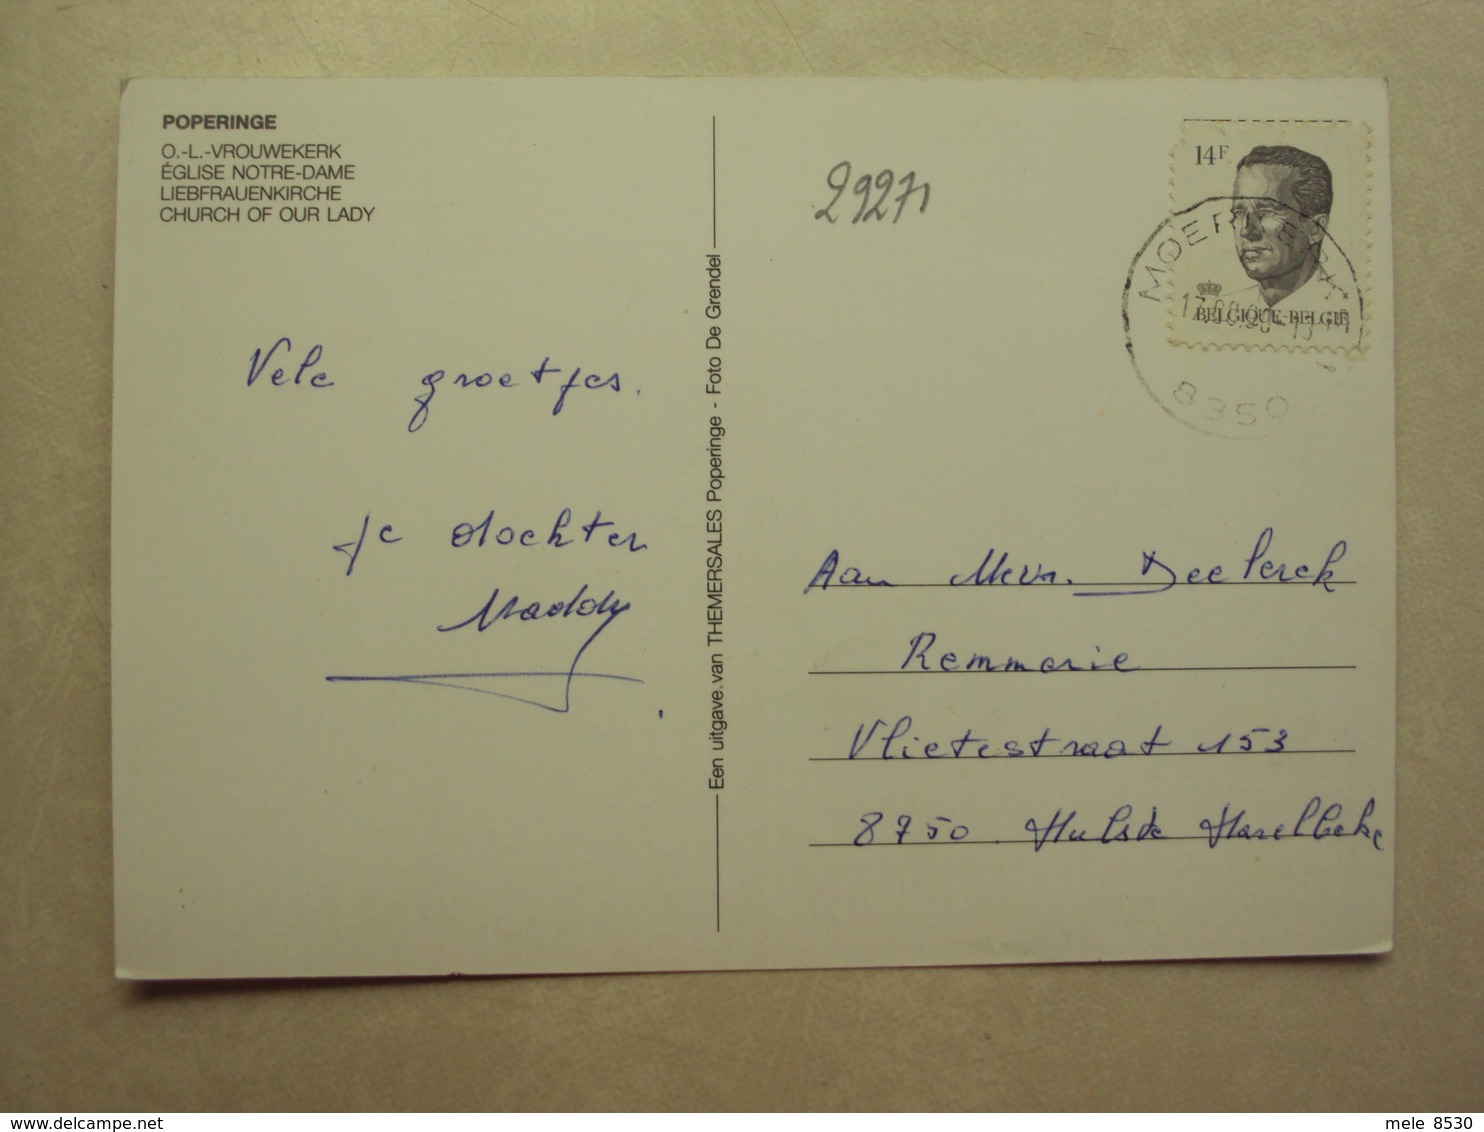 POPERINGE
O.-L.-VROUWEKERK
ÉGLISE NOTRE-DAME
LIEBFRAUENKIRCHE
CHURCH OF OUR LADY
Vele groetjes.
je dochter
Maddy
Een uitgave van THEMERSALES Poperinge - Foto De Grendel
29271
14F
BELGIQUE-BELGIË
8350
Aan Mevr. Declerck
Remmerie
Vlietestraat 153
8750 Hulste Harelbeke
www.delcampe.net
mele 8530